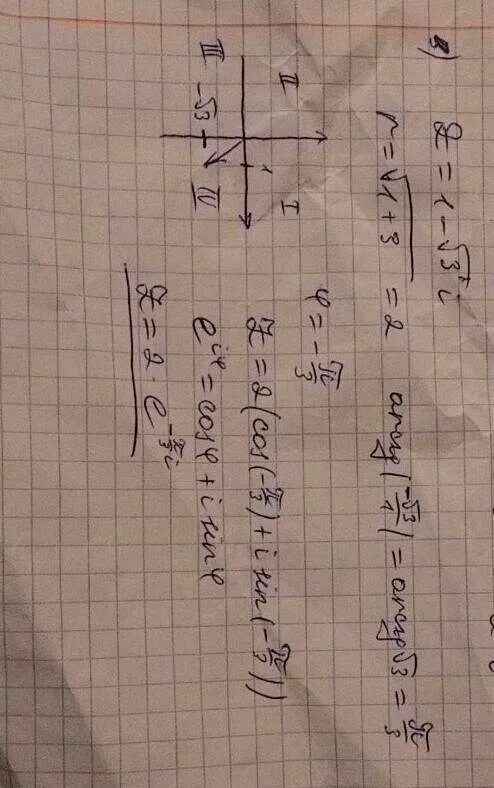 в) z = 1 - √3 i
r = √(1+3) = 2 arctg |-√3/1| = arctg √3 = π/3
II I
1
-√3
III IV
φ = -π/3
z = 2(cos(-π/3) + i sin(-π/3))
e^{iφ} = cosφ + i sinφ
z = 2 · e^{-π/3 i}